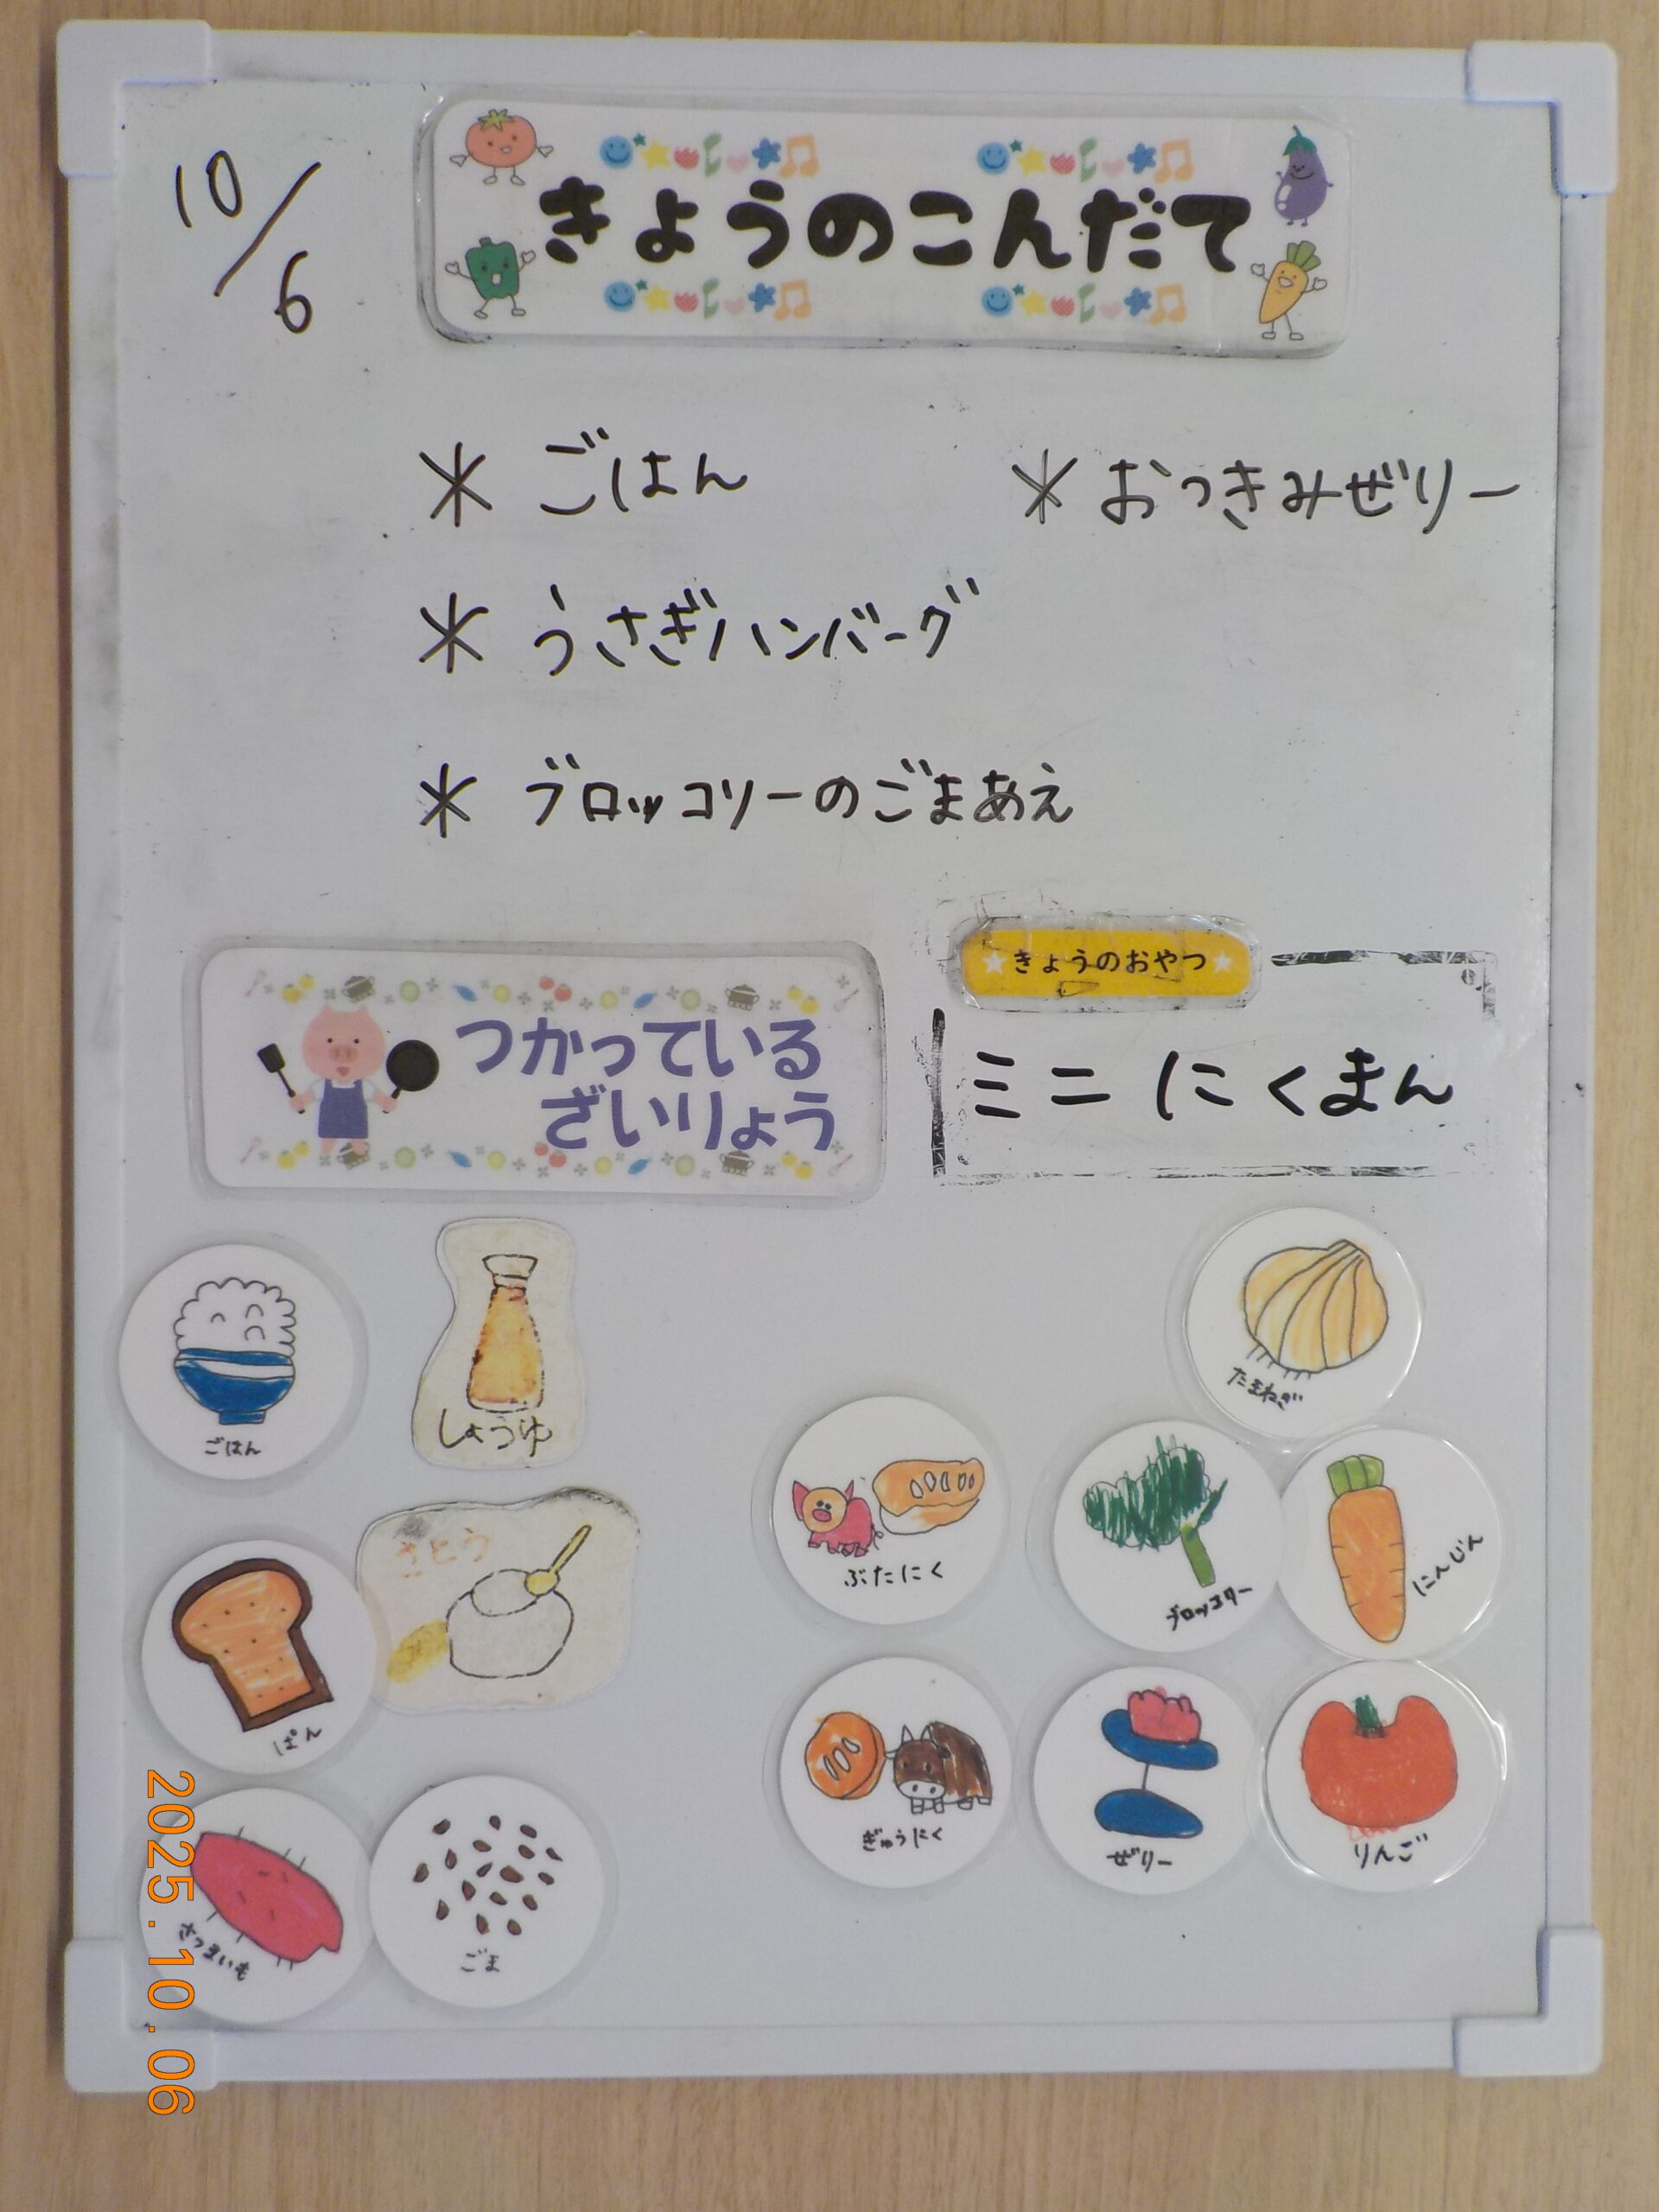 10/6
きょうのこんだて
* ごはん
* おつきみゼリー
* うさぎハンバーグ
* ブロッコリーのごまあえ
つかっている
ざいりょう
★きょうのおやつ★
ミニにくまん
ごはん
しょうゆ
さとう
ぱん
さつまいも
ごま
たまねぎ
ぶたにく
ブロッコリー
にんじん
ぎゅうにく
ぜりー
りんご
2025.10.06